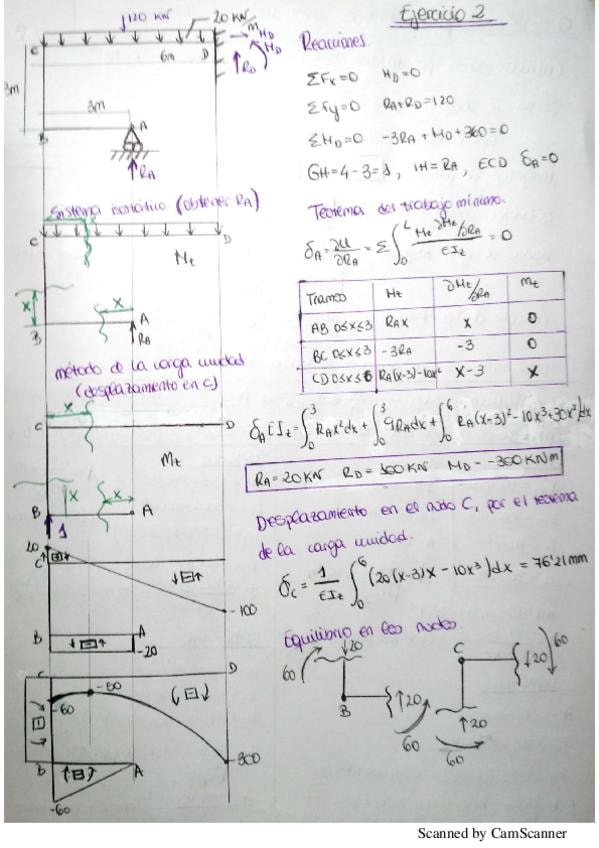 Ejercicio 2
120 KN
20 KN
C
D
6m
M_D
H_D
R_D
3m
3m
B
A
R_A
Reacciones
ΣFx=0 H_D=0
ΣFy=0 R_A+R_D=120
ΣM_D=0 -3R_A+M_D+360=0
GH=4-3=1, IH=R_A, ECD δ_A=0
Sistema isostático (obtener R_A)
C
D
M_t
X
X
B
A
R_A
Teorema del trabajo mínimo.
δ_A=∂U/∂R_A=Σ∫₀ᴸ M_t ∂M_t/∂R_A / EI_z = 0
Tramos M_t ∂M_t/∂R_A m_t
AB 0≤x≤3 R_A x x 0
BC 0≤x≤3 -3R_A -3 0
CD 0≤x≤6 R_A(x-3)-10x² x-3 x
método de la carga unidad
(desplazamiento en C)
X
C
D
m_t
X
X
B
A
1
δ_A EI_z=∫₀³ R_A x²dx+∫₀³ 9R_A dx+∫₀⁶ R_A(x-3)²-10x³+30x² dx
R_A=20KN R_D=100KN M_D=-300KNm
Desplazamiento en el nudo C, por el teorema
de la carga unidad.
δ_C=1/EI_z ∫₀⁶ (20(x-3)x-10x³)dx=76'21mm
20
C
-100
B
A
-20
Equilibrio en los nudos.
60
20
B
20
60
C
20
60
20
60
C
D
-50
-60
-300
B
A
-60
Scanned by CamScanner